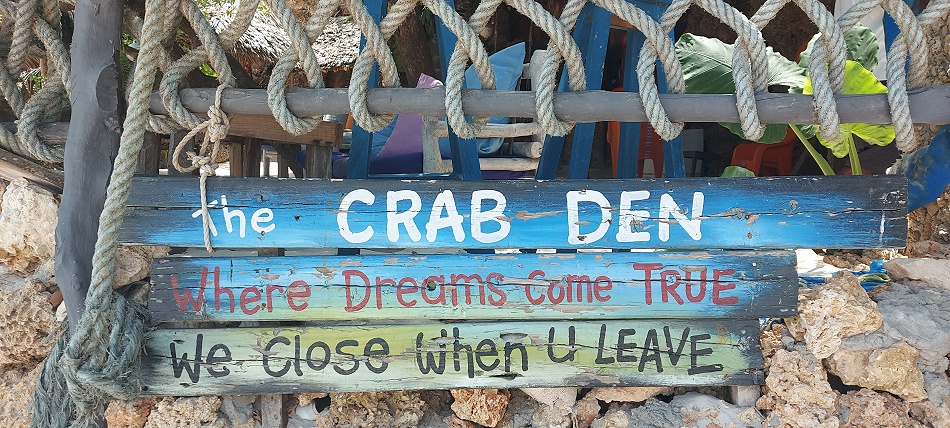 The CRAB DEN
Where Dreams Come TRUE
We Close When U LEAVE